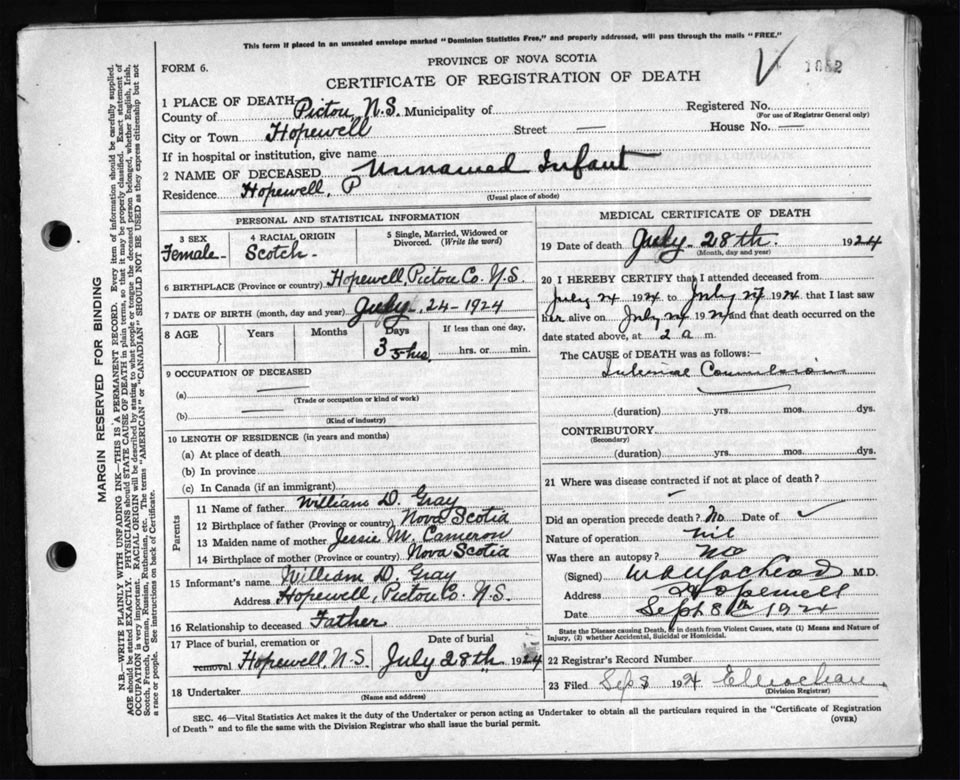 This form if placed in an unsealed envelope marked "Dominion Statistics Free," and properly addressed, will pass through the mails "FREE."
PROVINCE OF NOVA SCOTIA
FORM 6.
CERTIFICATE OF REGISTRATION OF DEATH
V 1052
1 PLACE OF DEATH
County of Pictou, N.S. Municipality of
Registered No.
(For use of Registrar General only)
City or Town Hopewell Street — House No. —
If in hospital or institution, give name
2 NAME OF DECEASED Unnamed Infant
Residence Hopewell, P
(Usual place of abode)
PERSONAL AND STATISTICAL INFORMATION
3 SEX
Female
4 RACIAL ORIGIN
Scotch
5 Single, Married, Widowed or Divorced. (Write the word)
6 BIRTHPLACE (Province or country) Hopewell, Pictou Co. N.S.
7 DATE OF BIRTH (month, day and year) July - 24 - 1924
8 AGE Years Months Days If less than one day,
3 5 hrs. hrs. or min.
9 OCCUPATION OF DECEASED
(a) —
(Trade or occupation or kind of work)
(b) —
(Kind of industry)
10 LENGTH OF RESIDENCE (in years and months)
(a) At place of death
(b) In province
(c) In Canada (if an immigrant)
Parents
11 Name of father William D. Gray
12 Birthplace of father (Province or country) Nova Scotia
13 Maiden name of mother Jessie M. Cameron
14 Birthplace of mother (Province or country) Nova Scotia
15 Informant's name William D. Gray
Address Hopewell, Pictou Co. N.S.
16 Relationship to deceased Father
17 Place of burial, cremation or removal Hopewell N.S.
Date of burial July 28th 1924
18 Undertaker
(Name and address)
MEDICAL CERTIFICATE OF DEATH
19 Date of death July 28th. 1924
(Month, day and year)
20 I HEREBY CERTIFY that I attended deceased from
July 24 1924 to July 27 1924 that I last saw
her alive on July 1924 and that death occurred on the
date stated above, at 2 a m.
The CAUSE OF DEATH was as follows:—
(duration) yrs. mos. dys.
CONTRIBUTORY
(Secondary)
(duration) yrs. mos. dys.
21 Where was disease contracted if not at place of death?
Did an operation precede death? No Date of ✓
Nature of operation nil
Was there an autopsy? No
(Signed) M.D.
Address Hopewell
Date Sept 8th 1924
State the Disease causing Death, or in death from Violent Causes, state (1) Means and Nature of
Injury, (2) whether Accidental, Suicidal or Homicidal.
22 Registrar's Record Number
23 Filed Sep 8 1924
(Division Registrar)
SEC. 46—Vital Statistics Act makes it the duty of the Undertaker or person acting as Undertaker to obtain all the particulars required in the "Certificate of Registration
of Death" and to file the same with the Division Registrar who shall issue the burial permit.
(OVER)
MARGIN RESERVED FOR BINDING
N.B.—WRITE PLAINLY WITH UNFADING INK—THIS IS A PERMANENT RECORD. Every item of information should be carefully supplied.
AGE should be stated EXACTLY. PHYSICIANS should STATE CAUSE OF DEATH in plain terms, so that it may be properly classified. Exact statement of
OCCUPATION is very important. RACIAL ORIGIN will be described by stating to what people or tongue the deceased person belonged, whether English, Irish,
Scotch, French, German, Russian, Ruthenian, etc. The terms "AMERICAN" or "CANADIAN" SHOULD NOT BE USED as they express citizenship but not
a race or people. See instructions on back of Certificate.